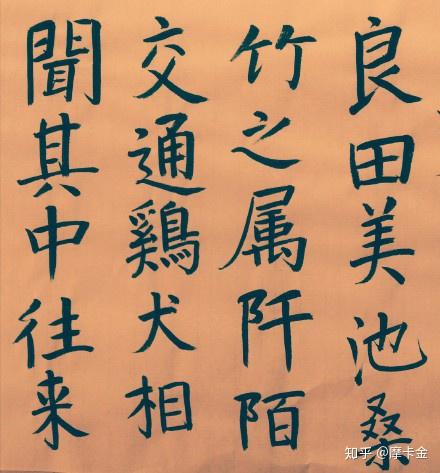 良田美池桑
竹之属阡陌
交通鷄犬相
聞其中往来
知乎 @摩卡金